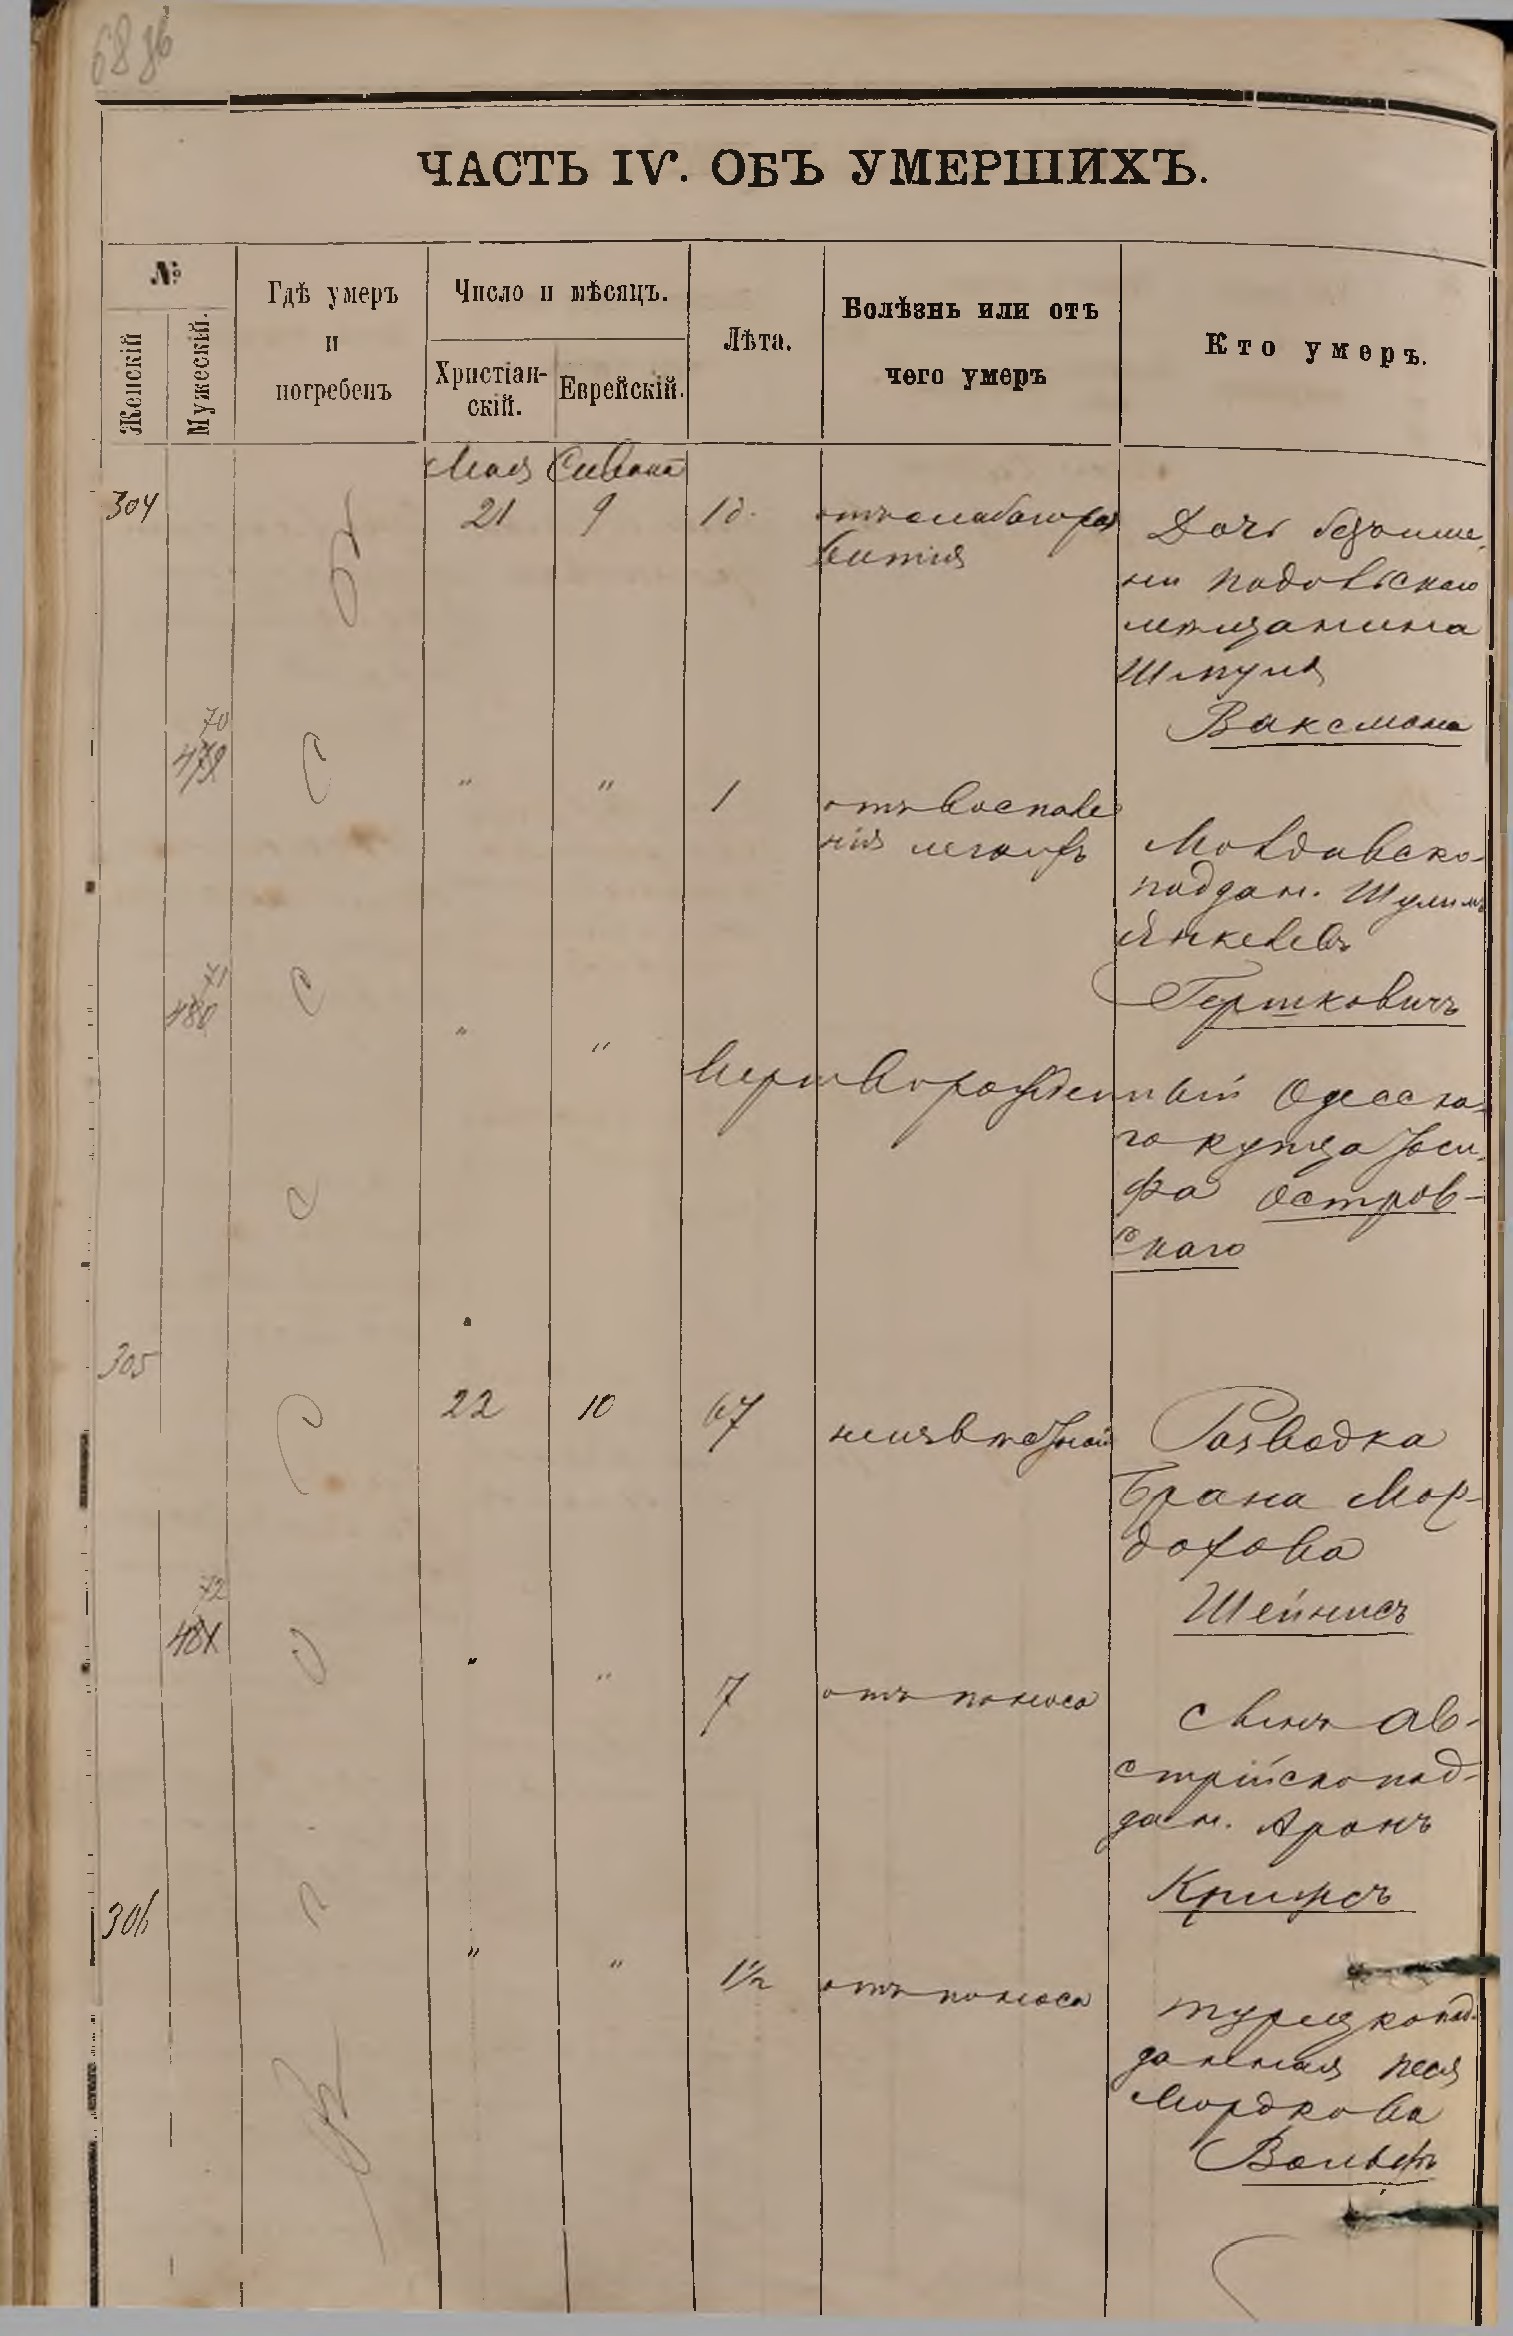 68 об
ЧАСТЬ IV. ОБЪ УМЕРШИХЪ.
№
Женскій
Мужескій.
Гдѣ умеръ
и
погребенъ
Число и мѣсяцъ.
Христіан-
скій.
Еврейскій.
Лѣта.
Болѣзнь или отъ
чего умеръ
Кто умеръ.
Мая Сивана
304 21 9 1 д. отъ слабаго раз
витія
Дочь безъиме-
ни Подольскаго
мѣщанина
Шмуля
Ваксмана
70
479 " " 1 отъ воспале
нія легкихъ
Молдавско-
поддан. Шулимъ
Янкелевъ
Гершковичъ
71
480 " " Мертворожденный Одесска-
го купца Іоси-
фа Остров-
скаго
305 22 10 67 неизвѣстной
Разводка
Брана Мор-
дохова
Шейнисъ
72
481 " " 7 отъ поноса
сынъ Ав-
стрійскопод-
дан. Аронъ
306 " " 1½ отъ поноса
турецкопод-
данная Песя
Мордкова
Вольфъ